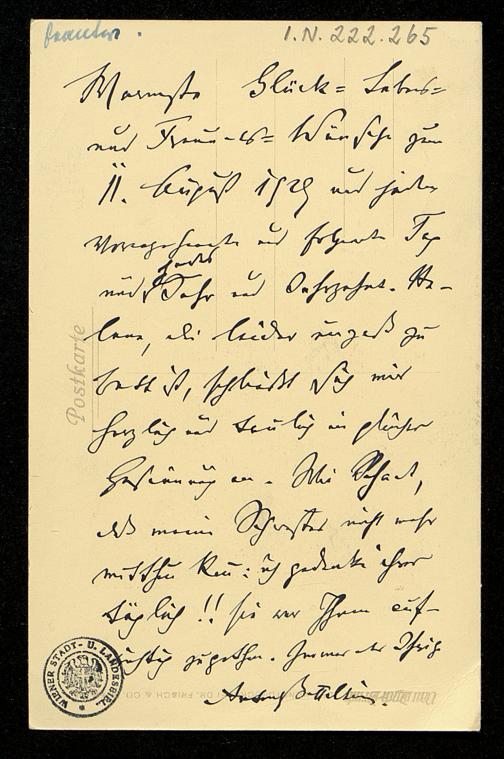 I.N. 222.265
Warmste Glück= Lebens=
und Freundes= Wünsche zum
11. August 1929 und jeden
vorangehenden und folgenden Tag
und jedes Jahr und Jahrzehnt. He-
lene, die leider ungest zu
Bett ist, schließt sich mir
herzlich und treulich in gleicher
Gesinnung an. Wie Schade,
daß meine Schwester nicht mehr
mitthun kann: ich gedenke ihrer
täglich!! Sie war Ihnen auf-
richtig zugethan. Immer der Ihrige
Anton Bettelheim.
Postkarte
WIENER STADT- U. LANDESBIBL.
DR. FRISCH & CO